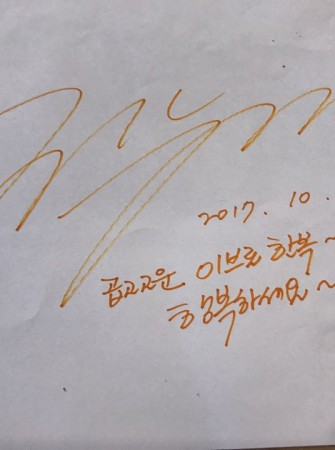 2017. 10.
곱고고운 이브로 한복~
행복하세요~